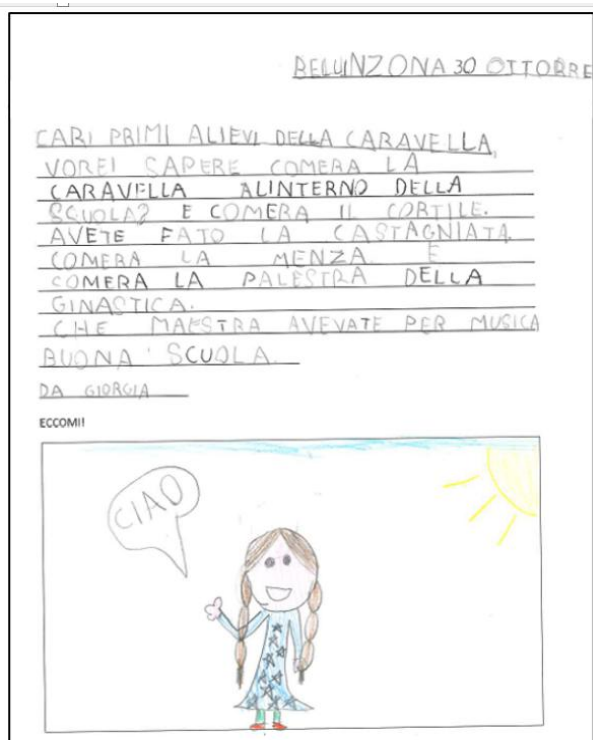 BELUINZONA 30 OTTOBRE
CARI PRIMI ALIEVI DELLA CARAVELLA,
VOREI SAPERE COMERA LA
CARAVELLA ALINTERNO DELLA
SCUOLA? E COMERA IL CORTILE.
AVETE FATO LA CASTAGNIATA.
COMERA LA MENZA. E
COMERA LA PALESTRA DELLA
GINASTICA.
CHE MAESTRA AVEVATE PER MUSICA
BUONA SCUOLA.
DA GIORGIA
ECCOMI!
CIAO